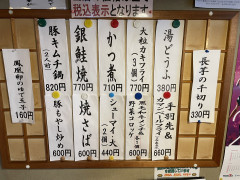 税込表示となります。
長芋の千切り
330円
湯どうふ
380円
大粒カキフライ
(3個)
770円
かつ煮
710円
銀鮭焼
770円
豚キムチ鍋
(2人前)
820円
鳳凰卵のゆで玉子
160円
手羽先&
660円
野菜コロッケ
440円
シューマイ・大
(2個)
440円
焼そば
600円
豚もやし炒め
600円